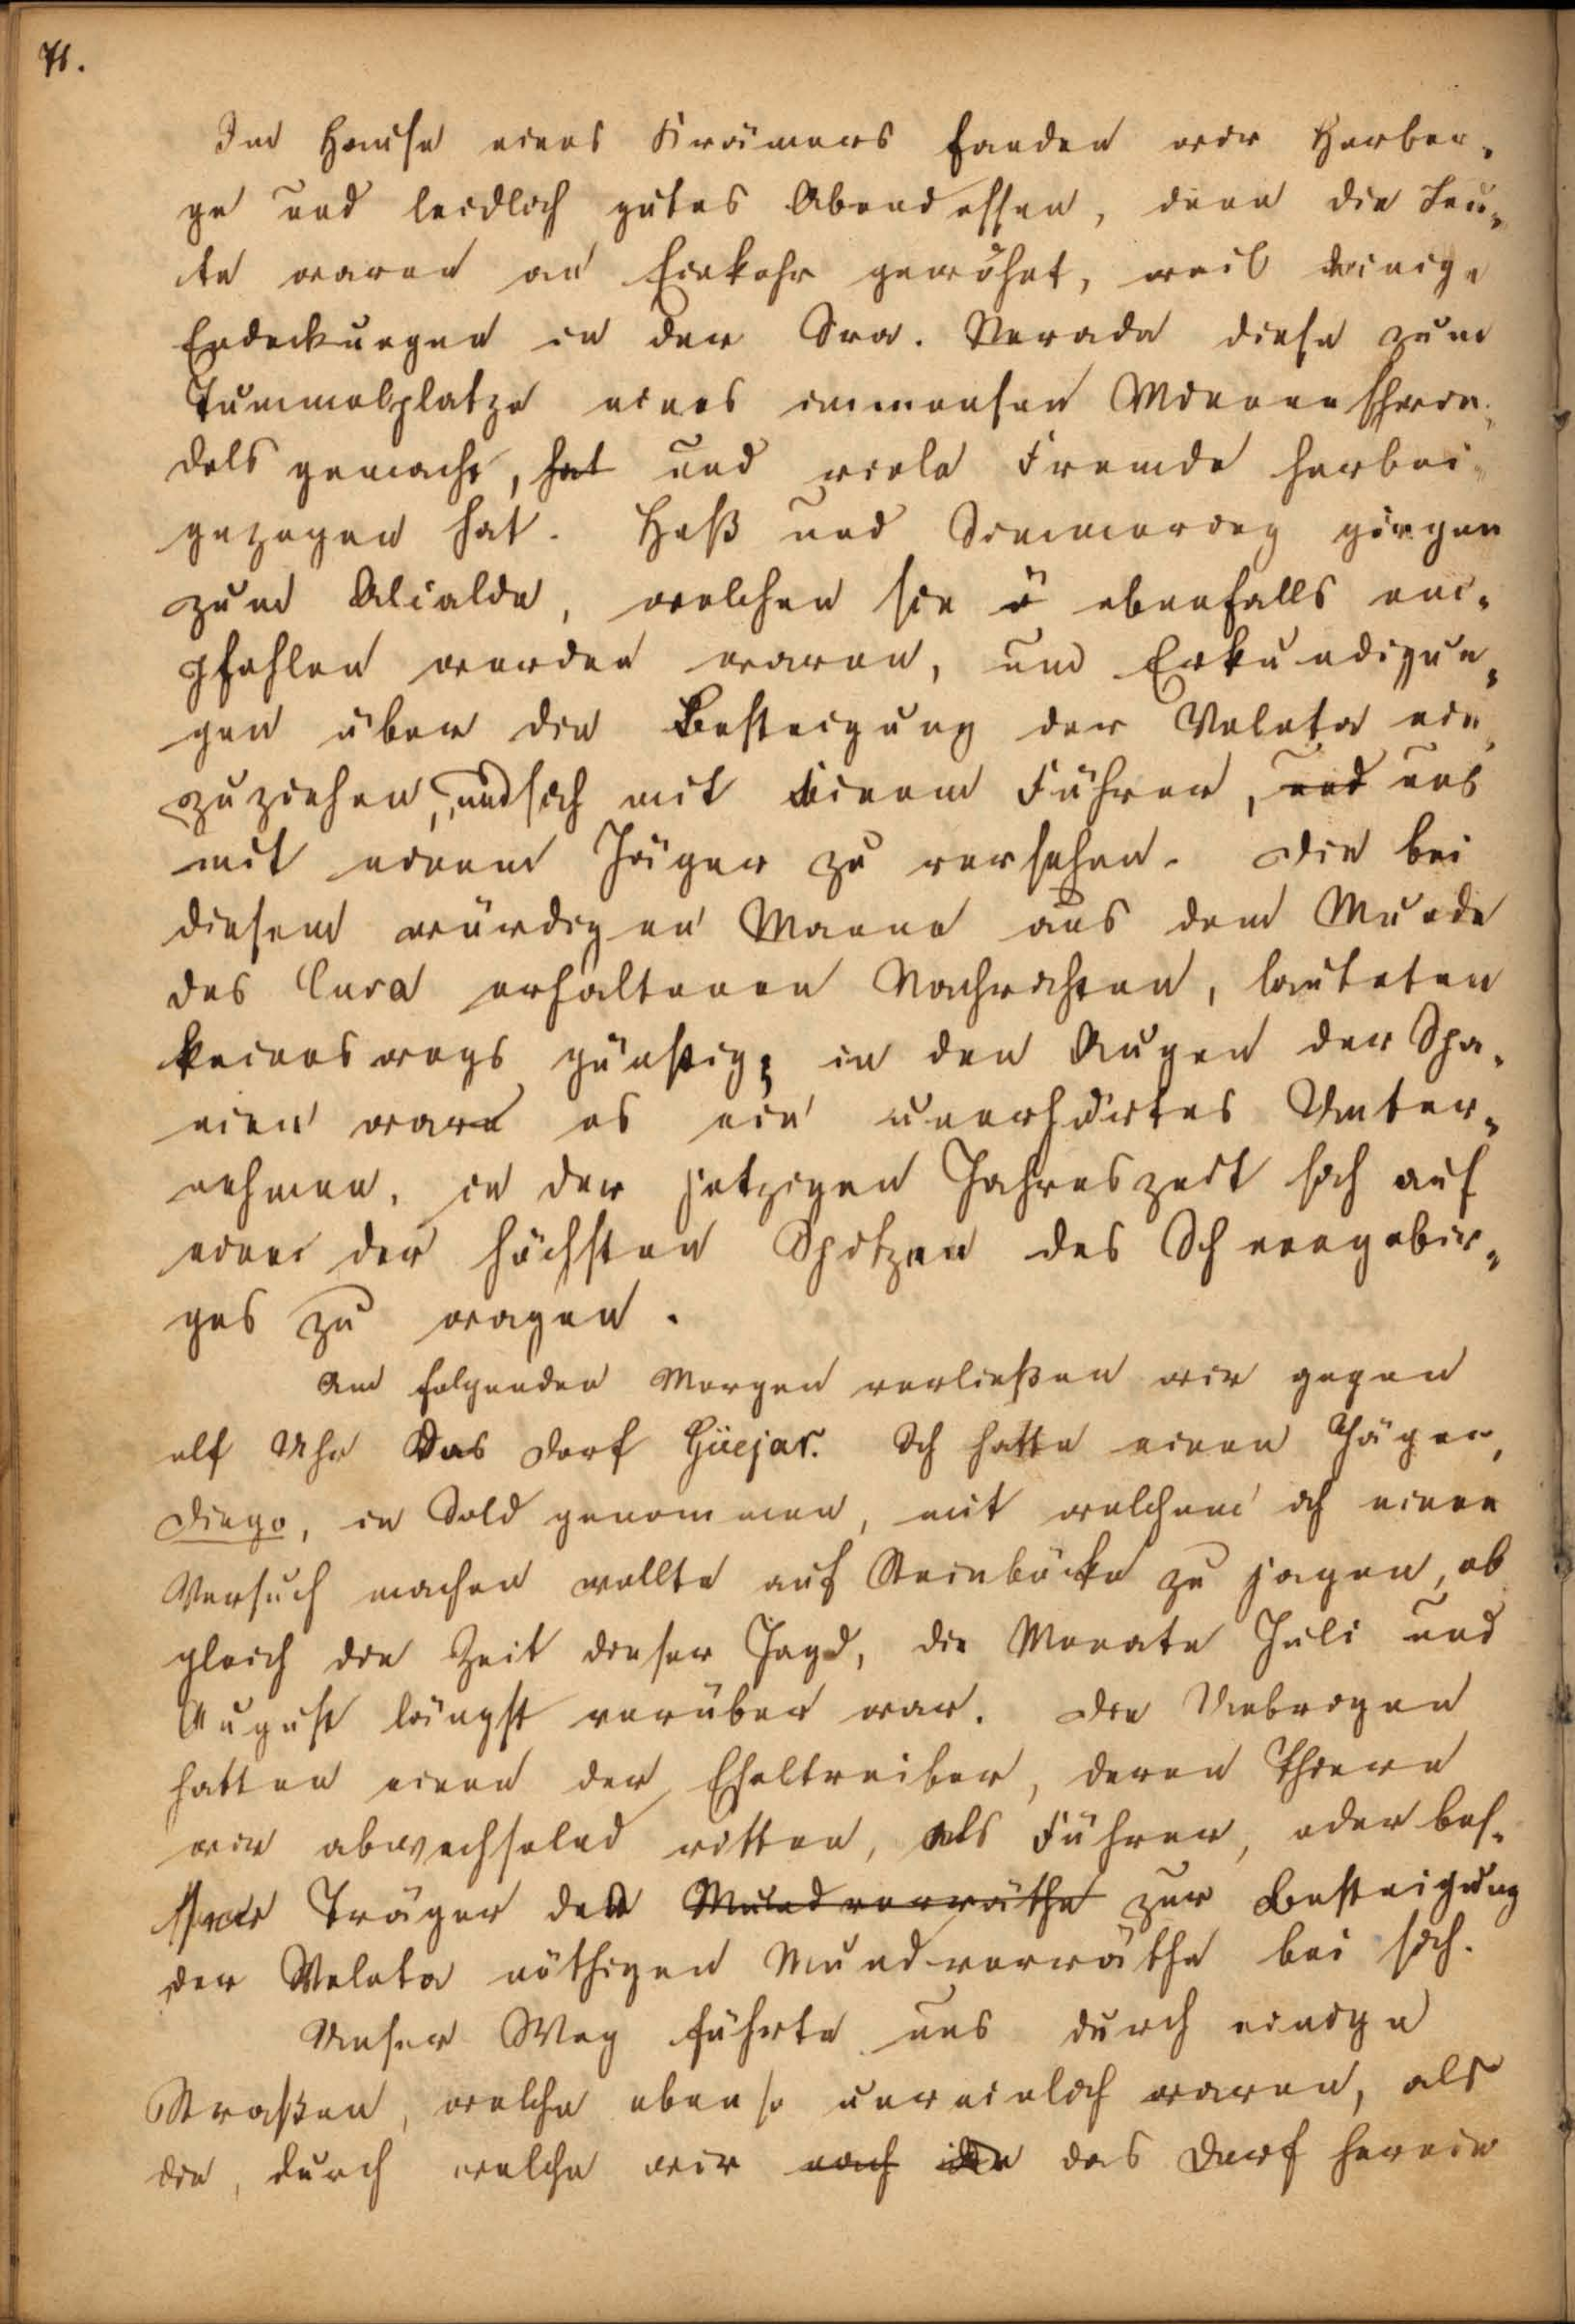 71.
Im Hause eines Krämers fanden wir Herber-
ge und leidlich gutes Abendessen, denn die Leu-
te waren an Einkehr gewöhnt, weil einige
Endeckungen in der Sra. Nevada diese zum
Tummelplatze eines immensen Minenschwin-
dels gemacht, hat und viele Fremde herbei-
gezogen hat. Heß und Simmering gingen
zum Alcalde, welchen sie ebenfalls em-
pfohlen worden waren, um Erkundigun-
gen über die Besteigung der Veleta ein-
zuziehen, und sich mit einem Führer, und uns
mit einem Jäger zu versehen. Die bei
diesem würdigen Manne aus dem Munde
des Cura erhaltenen Nachrichten, lauteten
keineswegs günstig; in den Augen der Spa-
nier war es ein unerhörtes Unter-
nehmen, in der jetzigen Jahreszeit sich auf
einer der höchsten Spitzen des Schneegebir-
ges zu wagen.
Am folgenden Morgen verließen wir gegen
elf Uhr das Dorf Güejar. Ich hatte einen Jäger,
Diego, in Sold genommen, mit welchem ich einen
Versuch machen wollte auf Steinböcke zu jagen, ob
gleich die Zeit dieser Jagd, die Monate Juli und
August längst vorüber war. Die Uebrigen
hatten einen der Eseltreiber, deren Thiere
wir abwechselnd ritten, als Führer, oder bes-
ser Träger der Mundvorräthe zur Besteigung
der Veleta nöthigen Mundvorräthe bei sich.
Unser Weg führte uns durch einige
Straßen, welche ebenso unreinlich waren, als
die, durch welche wir nach in das Dorf herein